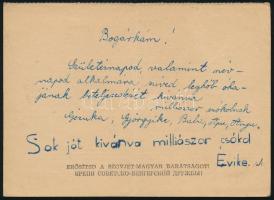 Bogárkám!
Születésnapod valamint név-
napod alkalmára szíved, legfőbb óha-
jának beteljesedését kívánva
milliószor csókolnak
Gyuka, Györgyike, Babi, Apu, Anyu.
Sok jót kívánva milliószor csókol
Evike.
ERŐSÍTSD A SZOVJET-MAGYAR BARÁTSÁGOT!
КРЕПИ СОВЕТСКО-ВЕНГЕРСКУЮ ДРУЖБУ!